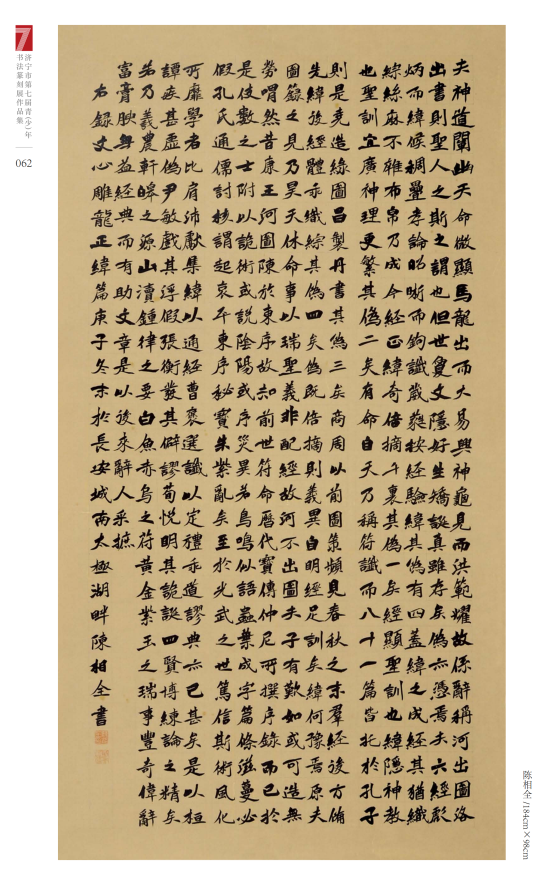 济宁市第七届青(少)年
书法篆刻展作品集
062
夫神道闡幽天命微顯馬龍出而大易興神龜見而洪範耀故係辭稱河出圖洛
出書則聖人之斯之謂也但世夐文隱好生矯誕真雖存矣偽亦憑焉夫六經彪
炳而緯候稠疊孝論昭晰而鉤讖葳蕤按經驗緯其偽有四蓋緯之成經其猶織
綜絲麻不雜布帛乃成今經正緯奇倍摘千裏其偽一矣經顯聖訓也緯隱神教
也聖訓宜廣神理更繁其偽二矣有命自天乃稱符讖而八十一篇皆托於孔子
則是堯造綠圖昌製丹書其偽三矣商周以前圖籙頻見春秋之末羣經後方備
先緯後經體乖織綜其偽四矣偽既倍摘則義異自明經足訓矣緯何豫焉原夫
圖籙之見乃昊天休命事以瑞聖義非配經故河不出圖夫子有歎如或可造無
勞喟然昔康王河圖陳於東序故知前世符命曆代寶傳仲尼所撰序錄而已於
是伎數之士附以詭術或說陰陽或序災異若鳥鳴似語蟲葉成字篇條滋蔓必
假孔氏通儒討核謂起哀平東序秘寶朱紫亂矣至於光武之世篤信斯術風化
所靡學者比肩沛獻集緯以通經曹褒選讖以定禮乖道謬典亦已甚矣是以桓
譚疾其虛偽尹敏戲其浮假張衡發其僻謬荀悅明其詭誕四賢博練論之精矣
若乃羲農軒皞之源山瀆鍾律之要白魚赤烏之符黃金紫玉之瑞事豐奇偉辭
富膏腴無益經典而有助文章是以後來辭人采摭
右錄文心雕龍正緯篇庚子冬末於長安城南太極湖畔陳相全書
陈相全/184cm×98cm